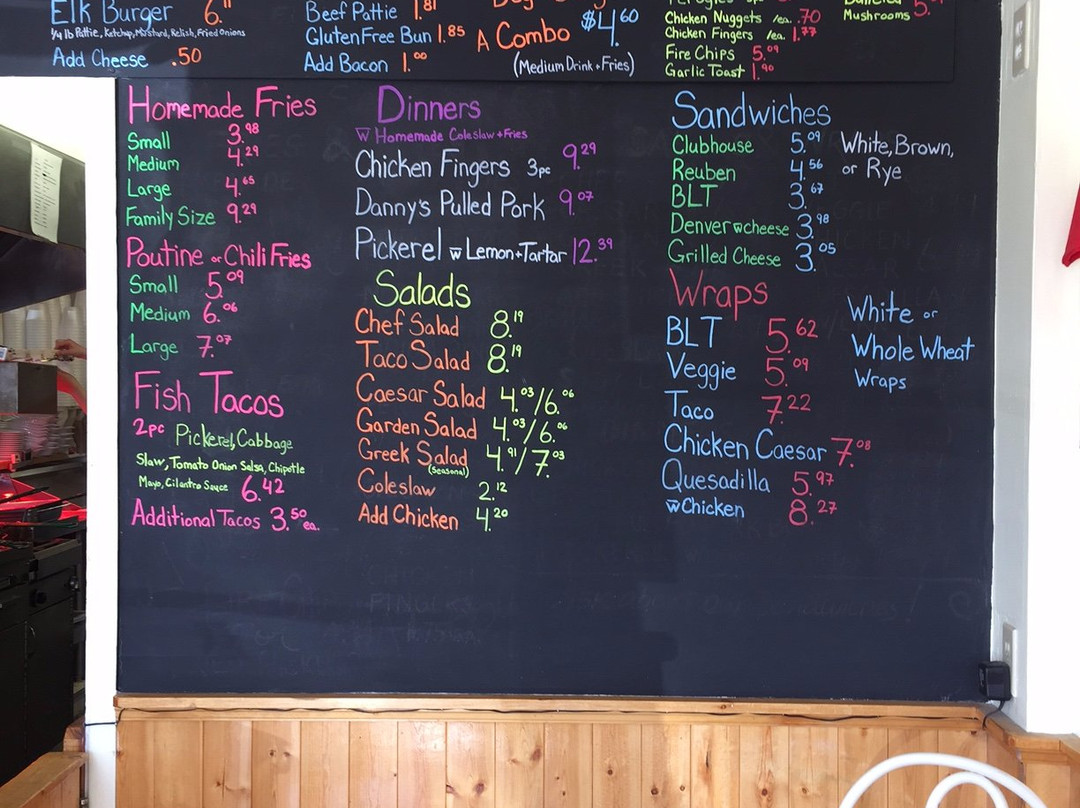 Elk Burger 6.11
1/4 lb Pattie, Ketchup, Mustard, Relish, Fried Onions
Add Cheese .50
Beef Pattie 1.81
Gluten Free Bun 1.85
Add Bacon 1.00
A Combo $4.60
(Medium Drink + Fries)
Chicken Nuggets /ea. .70
Chicken Fingers /ea. 1.77
Fire Chips 5.09
Garlic Toast 1.90
Mushrooms
Homemade Fries
Small 3.98
Medium 4.29
Large 4.65
Family Size 9.29
Poutine or Chili Fries
Small 5.09
Medium 6.06
Large 7.07
Fish Tacos
2pc Pickerel, Cabbage
Slaw, Tomato Onion Salsa, Chipotle
Mayo, Cilantro Sauce 6.42
Additional Tacos 3.50 ea.
Dinners
w Homemade Coleslaw + Fries
Chicken Fingers 3pc 9.29
Danny's Pulled Pork 9.07
Pickerel w Lemon + Tartar 12.39
Salads
Chef Salad 8.19
Taco Salad 8.19
Caesar Salad 4.03/6.06
Garden Salad 4.03/6.06
Greek Salad 4.91/7.03
(Seasonal)
Coleslaw 2.12
Add Chicken 4.20
Sandwiches
Clubhouse 5.09
Reuben 4.56
BLT 3.67
Denver w cheese 3.98
Grilled Cheese 3.05
White, Brown,
or Rye
Wraps
BLT 5.62
Veggie 5.09
Taco 7.22
Chicken Caesar 7.08
Quesadilla 5.97
w Chicken 8.27
White or
Whole Wheat
Wraps